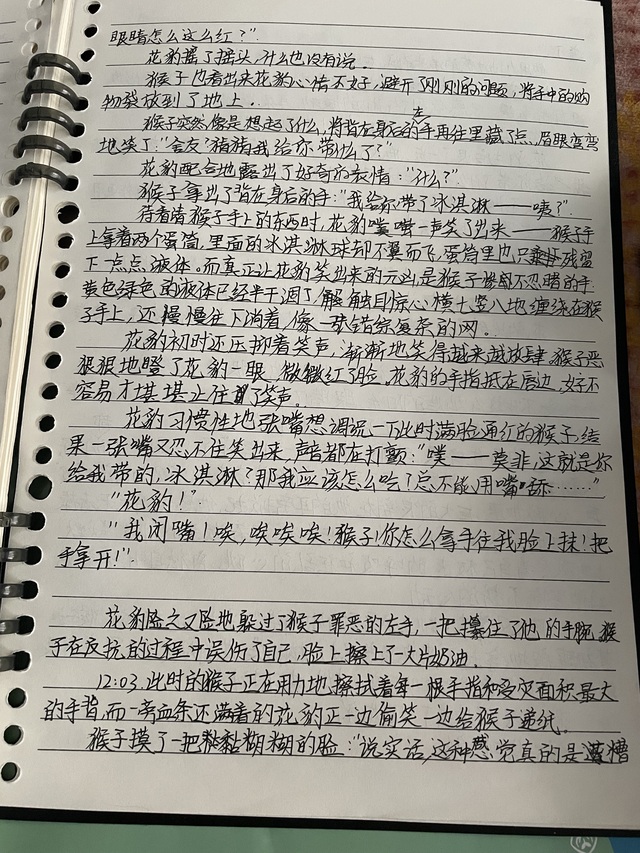 眼睛怎么这么红？"
花豹摇了摇头，什么也没有说。
猴子也看出来花豹心情不好，避开了刚刚的问题，将手中的购
物袋放到了地上。
猴子突然像是想起了什么，将背在身后的手再往里藏了点，眉眼弯弯
地笑了："会友？猜猜我给你带什么了？"
花豹配合地露出了好奇的表情："什么？"
猴子拿出了背在身后的手："我给你带了冰淇淋——咦？"
待看清猴子手上的东西时，花豹噗嗤一声笑了出来——猴子手
上拿着两个蛋筒，里面的冰淇淋球却不翼而飞，蛋筒里也只残留
下一点点液体。而真正让花豹笑出来的元凶是猴子惨不忍睹的手：
黄色绿色的液体已经半干涸了，触目惊心横七竖八地缠绕在猴
子手上，还慢慢往下淌着，像一张错综复杂的网。
花豹初时还压抑着笑声，渐渐地笑得越来越放肆。猴子恶
狠狠地瞪了花豹一眼，微微红了脸。花豹的手指抵在唇边，好不
容易才堪堪止住了笑声。
花豹习惯性地张嘴想调说一下此时满脸通红的猴子，结
果一张嘴又忍不住笑出来，声音都在打颤："噗——莫非，这就是你
给我带的，冰淇淋？那我应该怎么吃？总不能用嘴舔……"
"花豹！"
"我闭嘴！唉，唉唉唉！猴子！你怎么拿手往我脸上抹！把
手拿开！"
花豹险之又险地躲过了猴子罪恶的左手，一把攥住了他的手腕，猴
子在反抗的过程中误伤了自己，脸上擦上了一大片奶油。
12:03，此时的猴子正在用力地擦拭着每一根手指和受灾面积最大
的手背，而一旁血条还满着的花豹正一边偷笑一边给猴子递纸。
猴子摸了一把黏黏糊糊的脸："说实话，这种感觉真的是遭糟